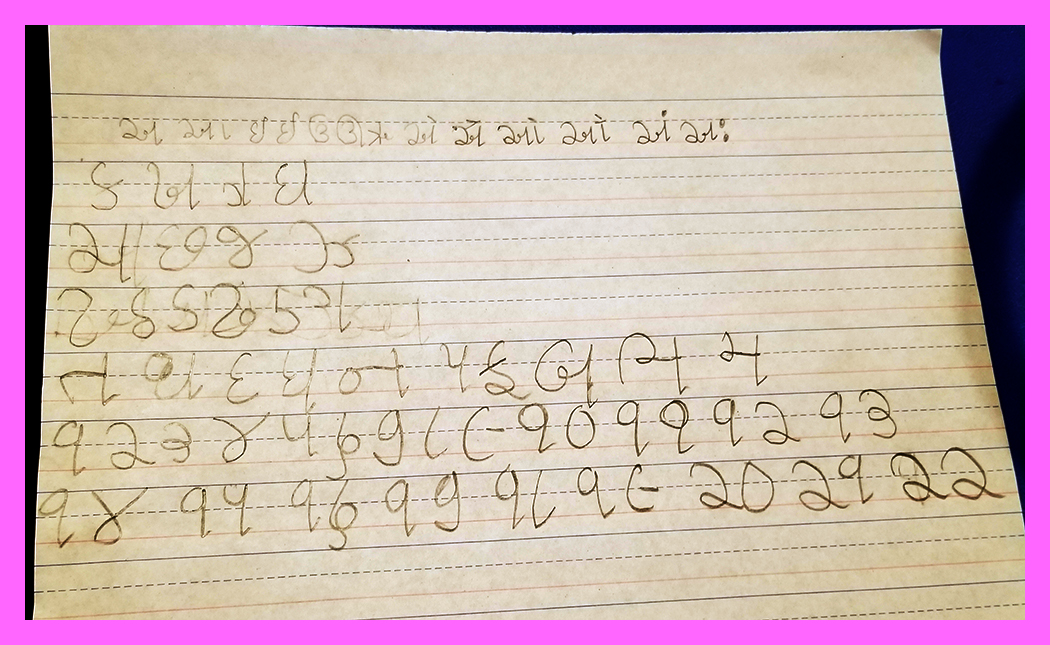 અ આ ઇ ઈ ઉ ઊ ઋ એ ઐ ઓ ઔ અં અઃ
ક ખ ગ ઘ
ચ છ જ ઝ
ટ ઠ ડ ઢ ણ
ત થ દ ધ ન પ ફ બ ભ મ
૧ ૨ ૩ ૪ ૫ ૬ ૭ ૮ ૯ ૧૦ ૧૧ ૧૨ ૧૩
૧૪ ૧૫ ૧૬ ૧૭ ૧૮ ૧૯ ૨૦ ૨૧ ૨૨